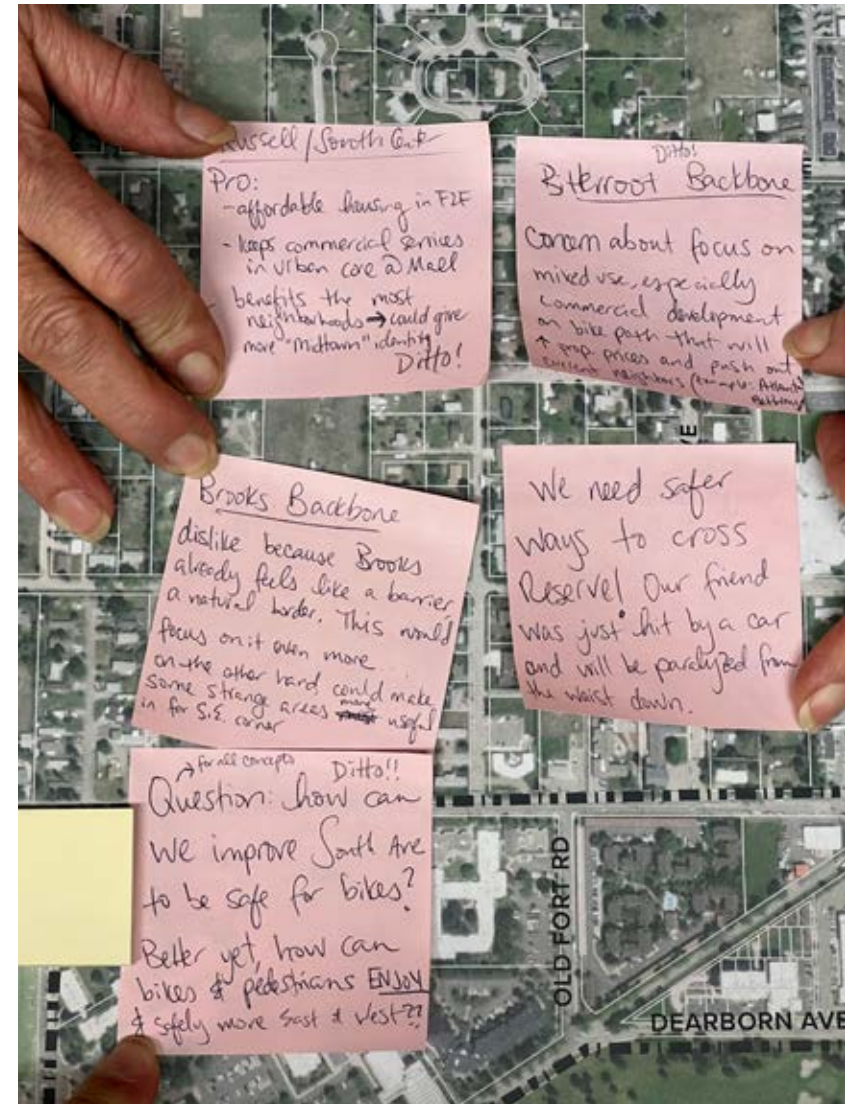 Russell/South
Pro:
- affordable housing in F2F
- keeps commercial services
in urban core @ Mall
- benefits the most
neighborhoods → could give
more "Midtown" identity
Ditto!
Ditto!
Bitterroot Backbone
Concern about focus on
mixed use, especially
commercial development
on bike path that will
↑ prop. prices and push out
current neighbors (example: Atlanta
Beltway
Brooks Backbone
dislike because Brooks
already feels like a barrier,
a natural border. This would
focus on it even more...
on the other hand could make
some strange areas more useful
in for S.E. corner
We need safer
ways to cross
Reserve! Our friend
was just hit by a car
and will be paralyzed from
the waist down.
→ for all concepts
Ditto!!
Question: how can
we improve South Ave
to be safe for bikes?
Better yet, how can
bikes & pedestrians ENJOY
& safely move East & West??
VE
OLD FORT RD
DEARBORN AVE